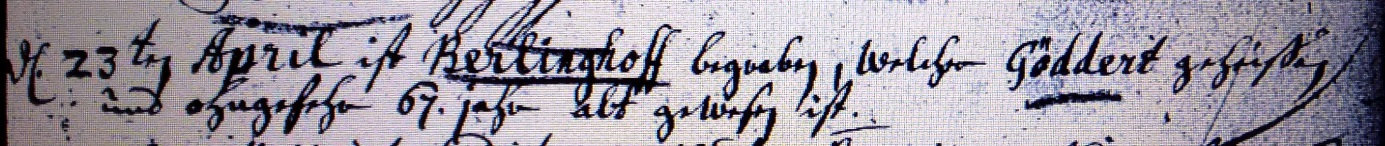 d. 23ten April ist Berlinghoff begraben, welcher Göddert geheißen,
und ohngefehr 67. jahr alt gewesen ist.